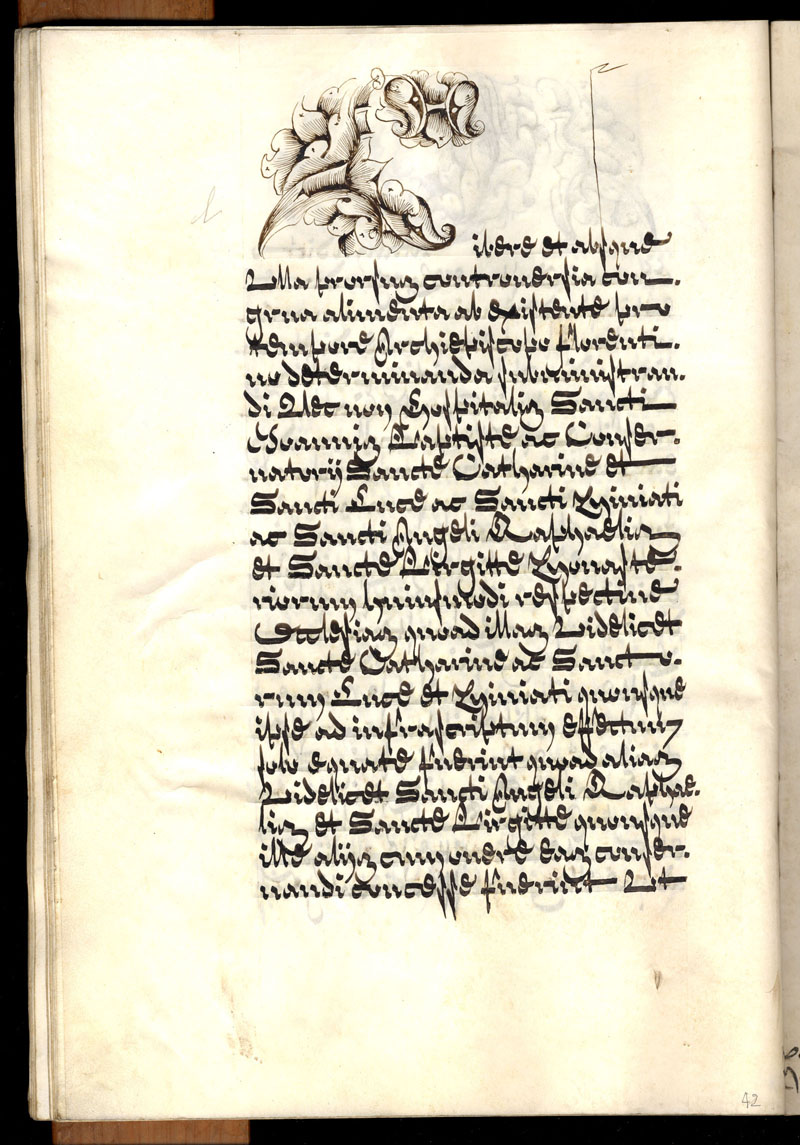 Libere et absque
Ulla prorsus controuersia con-
grua alimenta ab existente pro
tempore Archiepiscopo florenti-
no determinanda subministran-
di Nec non Hospitalis Sancti
Ioannis Baptiste ac Conser-
uatorij Sancte Catharine et
Sancti Luce ac Sancti Miniati
ac Sancti Angeli Raphaelis
et Sancte Birgitte Monaste-
riorum huiusmodi respectiue
Ecclesias quoad illas Videlicet
Sancte Catharine ac Sancto-
rum Luce et Miniati quousque
ipse ad infrascriptum effectum
solo equate fuerint quoad alias
Videlicet Sancti Angeli Raphae-
lis et Sancte Birgitte quousque
ille alijs cum onere eas conser-
uandi concesse fuerint Ut
42